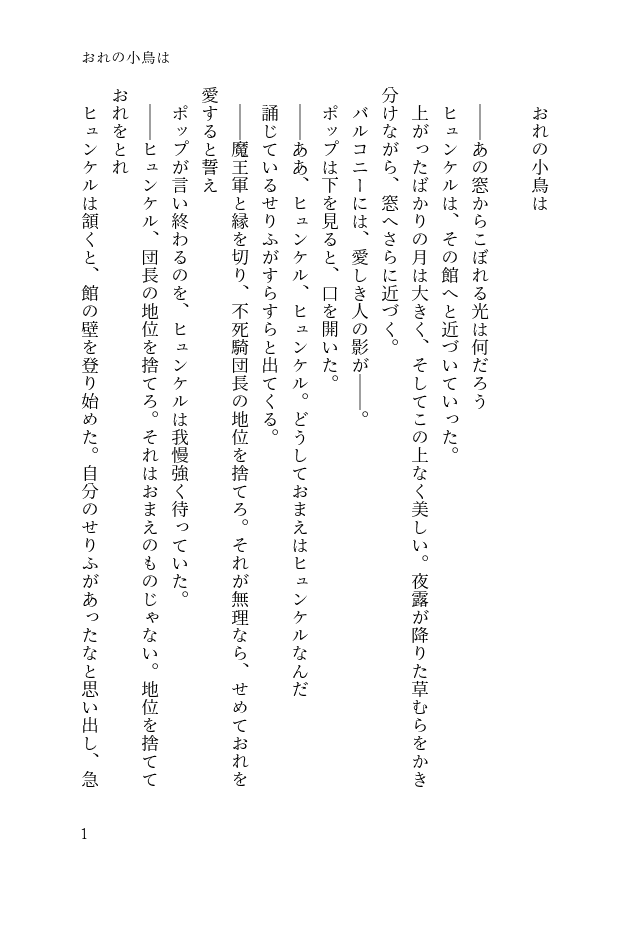 おれの小鳥は
おれの小鳥は
――あの窓からこぼれる光は何だろう
ヒュンケルは、その館へと近づいていった。
上がったばかりの月は大きく、そしてこの上なく美しい。夜露が降りた草むらをかき
分けながら、窓へさらに近づく。
バルコニーには、愛しき人の影が――。
ポップは下を見ると、口を開いた。
――ああ、ヒュンケル、ヒュンケル。どうしておまえはヒュンケルなんだ
誦じているせりふがすらすらと出てくる。
――魔王軍と縁を切り、不死騎団長の地位を捨てろ。それが無理なら、せめておれを
愛すると誓え
ポップが言い終わるのを、ヒュンケルは我慢強く待っていた。
――ヒュンケル、団長の地位を捨てろ。それはおまえのものじゃない。地位を捨てて
おれをとれ
ヒュンケルは頷くと、館の壁を登り始めた。自分のせりふがあったなと思い出し、急
1